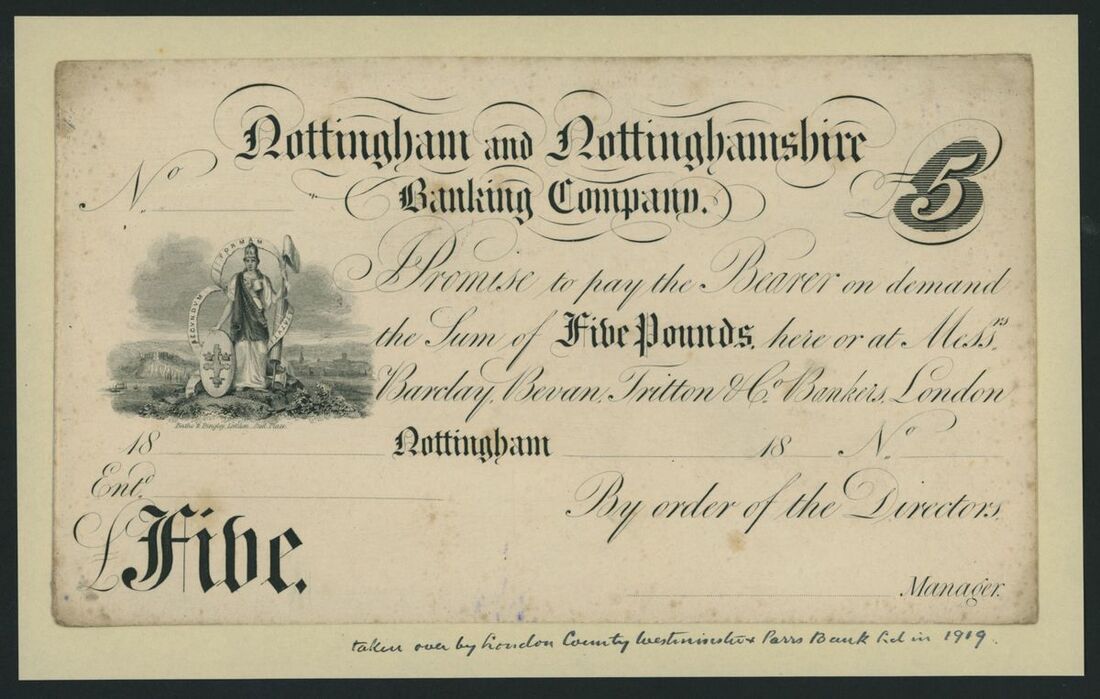 Nottingham and Nottinghamshire
Banking Company.
No.
£5
SECUNDUM FORMAM STATUTI
I Promise to pay the Bearer on demand
the Sum of Five Pounds, here or at Messrs.
Barclay, Bevan, Tritton & Co. Bankers, London
18 Nottingham 18 No.
Entd.
By order of the Directors,
£Five.
Manager.
taken over by London County Westminster & Parrs Bank Ltd in 1919.